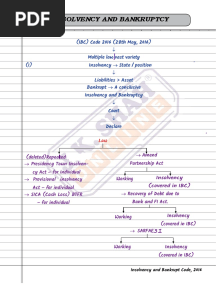 PDF
SOLVENCY AND BANKRUPTCY
(IBC) Code 2016 (28th May, 2016)
↓
Multiple lowpest variety
(1) Insolvency → State / position
↓
Liabilities > Asset
Bankrupt → A conclusive
Insolvency and Bankruptcy
↓
Court
↓
Declare
Law
(deleted) Repealed
→ Presidency Town Insolven-
cy Act – for individual
→ Provisional Insolvency
Act – for individual
→ SICA (Sick Loss) BIFR
– for individual
→ Amend
Partnership Act
Working Insolvency
(covered in IBC)
→ Recovery of Debt due to
Bank and F.I. Act.
Working Insolvency
(covered in IBC)
→ SARFAESI
Working Insolvency
(covered in IBC)
Insolvency and Bankruptcy Code, 2016